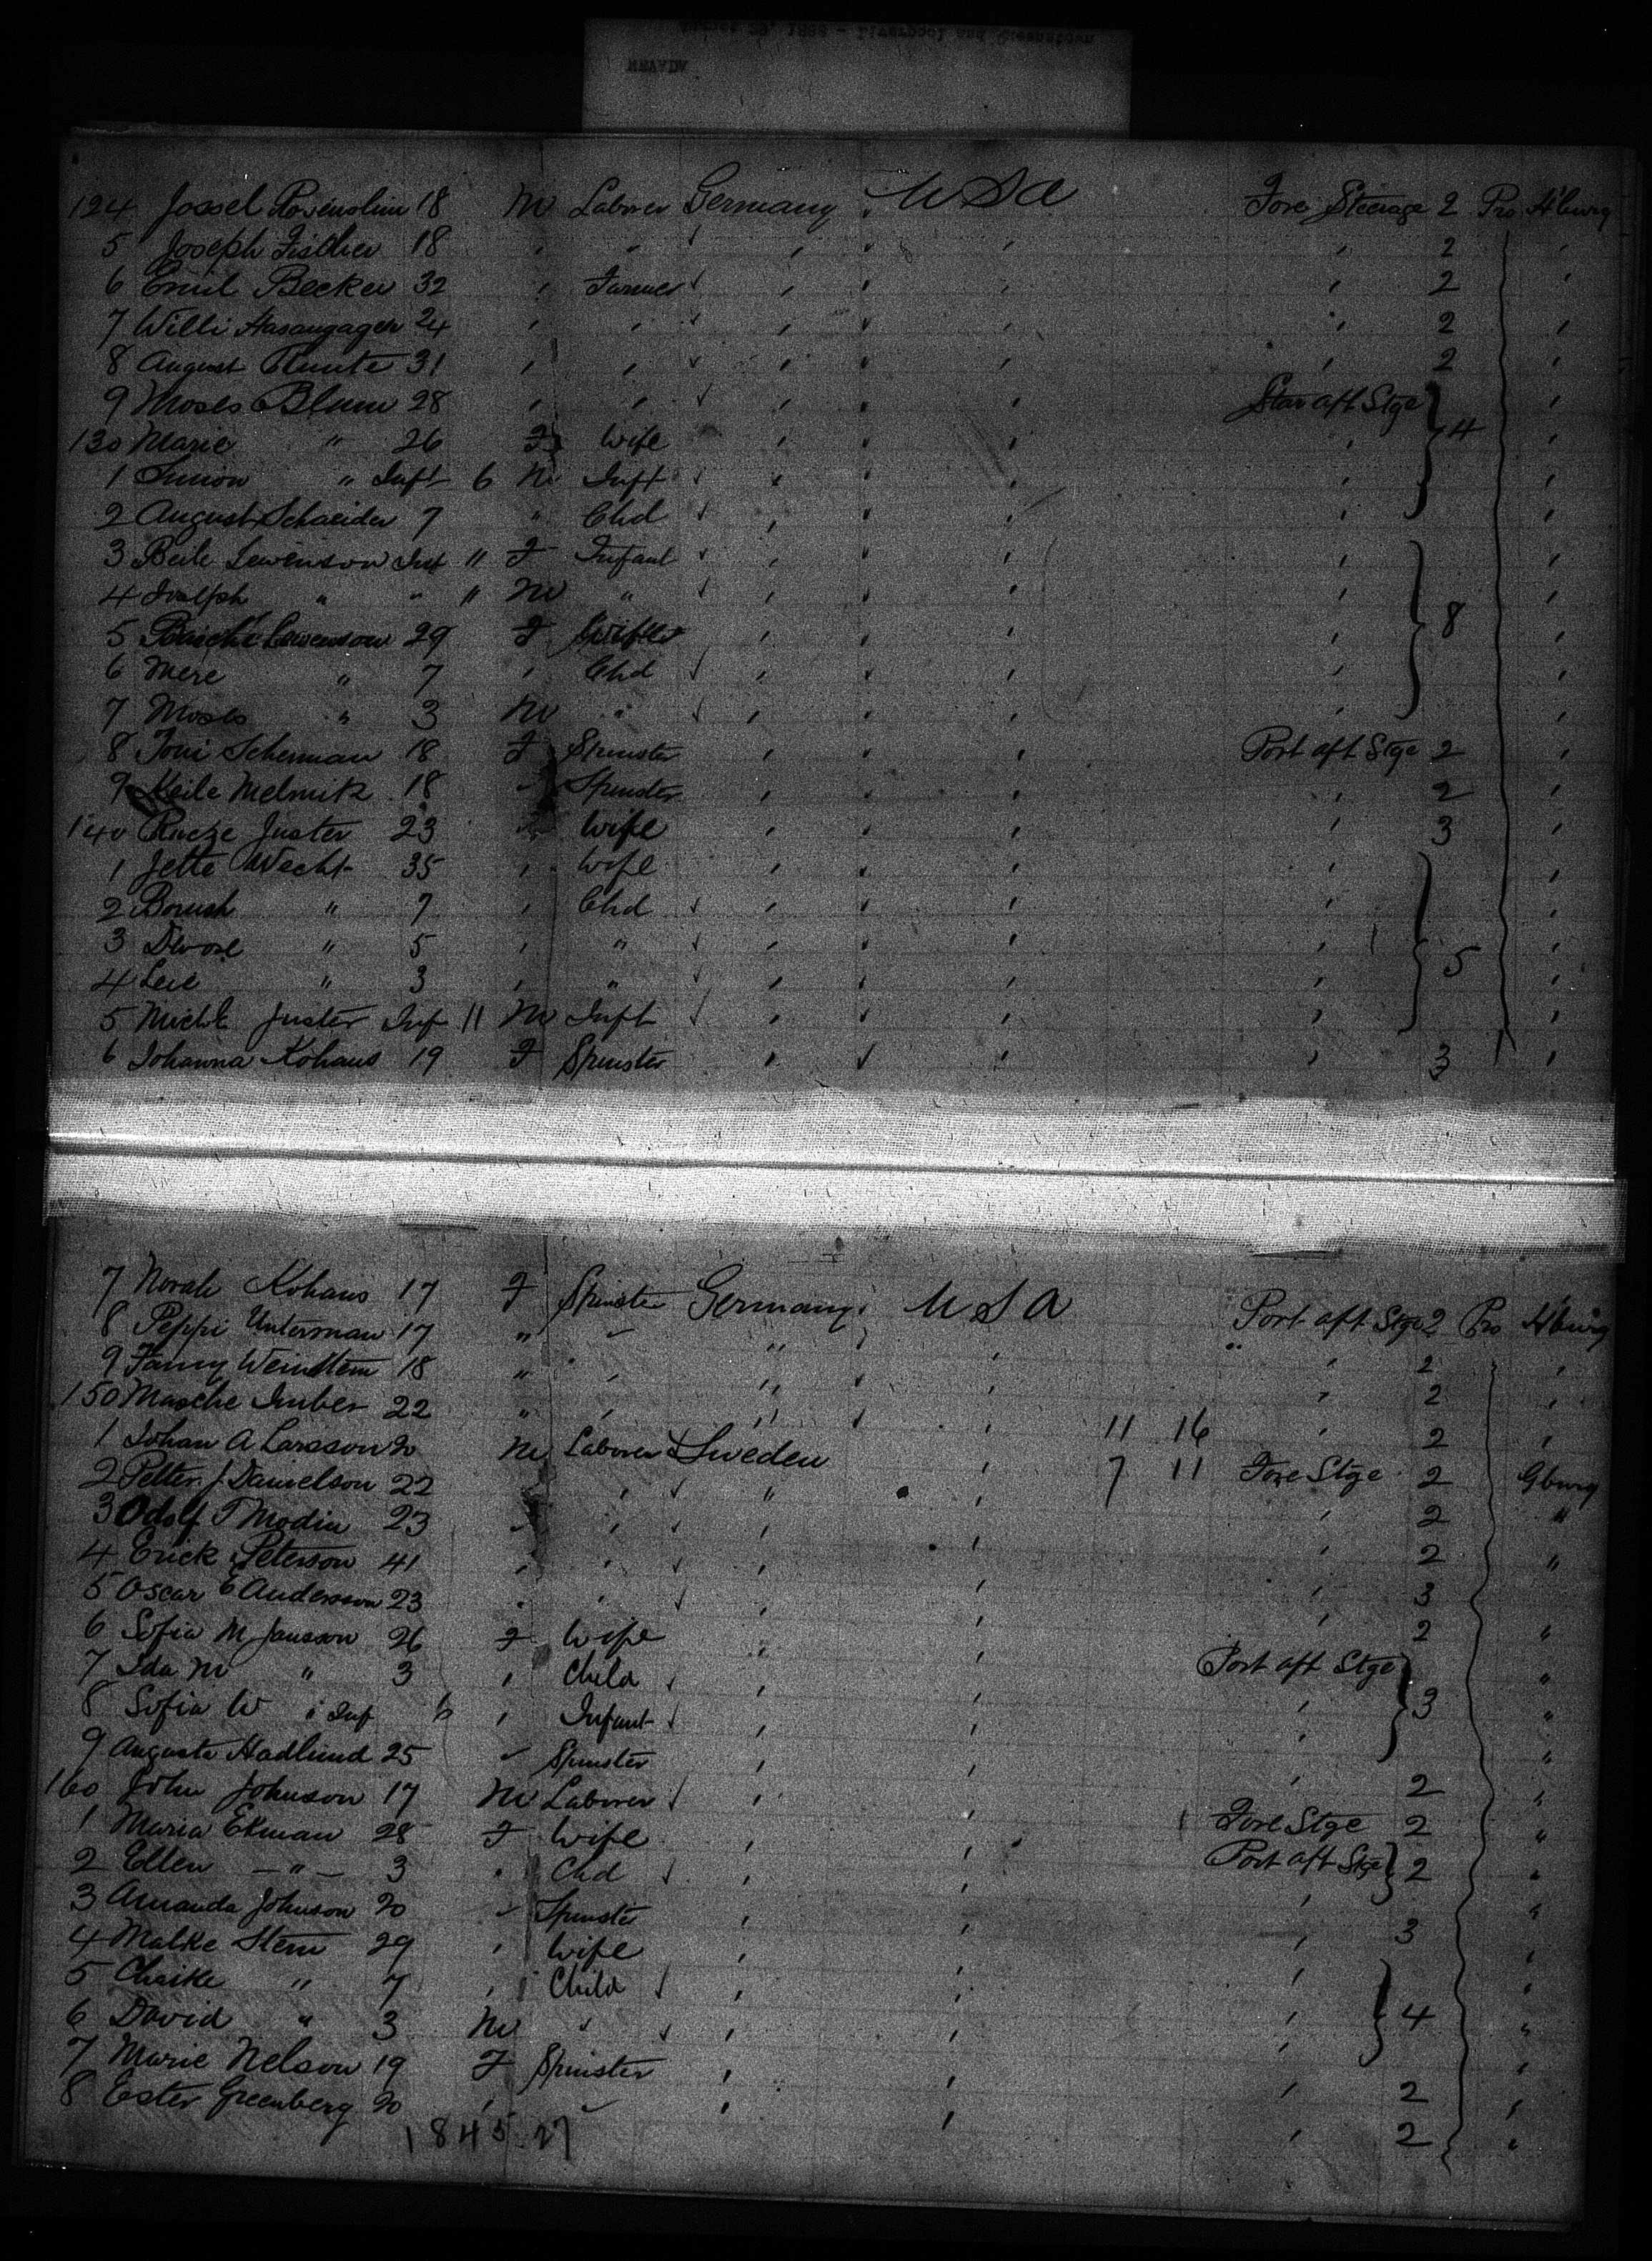 124 Jossel 18 M Laborer Germany U S A Fore Steerage 2 Pro H'burg
5 Joseph Fischer 18 " " " " " 2 "
6 Emil Becker 32 " Farmer " " " 2 "
7 Willi 24 " " " " " 2 "
8 August 31 " " " " " 2 "
9 Moses Blum 28 " " " " Star aft Stge "
130 Marie " 26 F Wife " " " 4 "
1 " Inft 6 M Inft " " " "
2 August Schneider 7 " Chd " " " "
3 Beile Lewinson Inf 11 F Infant " " " "
4 " " 11 M " " " " "
5 Lewenson 29 F " " " 8 "
6 Mere " 7 " Chd " " " "
7 Moses " 3 M " " " " "
8 Toni Scherman 18 F Spinster " " Port aft Stge 2 "
9 Keile Melnik 18 " Spinster " " " 2 "
140 Juster 23 " Wife " " " 3 "
1 Jette Wecht 35 " Wife " " " "
2 Borush " 7 " Chd " " " "
3 " 5 " " " " " "
4 Leie " 3 " " " " " 5 "
5 Juster Inf 11 M Inft " " " "
6 Johanna Kohaus 19 F Spinster " " " 3 "
7 Norah Kohaus 17 F Spinster Germany U S A Port aft Stge 2 Pro H'burg
8 Peppi Unterman 17 " " " " " 2 "
9 Fanny Weinstein 18 " " " " " 2 "
150 Masche Imber 22 " " " " 11 16 " 2 "
1 Johan A Larsson 20 M Laborer Sweden " 7 11 Fore Stge 2 Gburg
2 Petter J Danielson 22 " " " " " 2 "
3 Adolf T Modin 23 " " " " " 2 "
4 Erick Peterson 41 " " " " " 3
5 Oscar E Andersson 23 " " " " " 2 "
6 Sofia M Jansson 26 F Wife " " Port aft Stge "
7 Ida M " 3 " Child " " " 3 "
8 Sofia W " Inf 6 " Infant " " " "
9 Augusta Hadlund 25 " Spinster " " " 2 "
160 John Johnson 17 M Laborer " " Fore Stge 2 "
1 Maria Ekman 28 F Wife " " Port aft Stge 2 "
2 Ellen — " — 3 " Chd " " " "
3 Amanda Johnson 20 " Spinster " " " 3 "
4 Malke Stern 29 " Wife " " " "
5 Chaike " 7 " Child " " " 4 "
6 David " 3 M " " " " "
7 Marie Nelson 19 F Spinster " " " 2 "
8 Ester Greenberg 20 " " " " " 2 "
1845 27